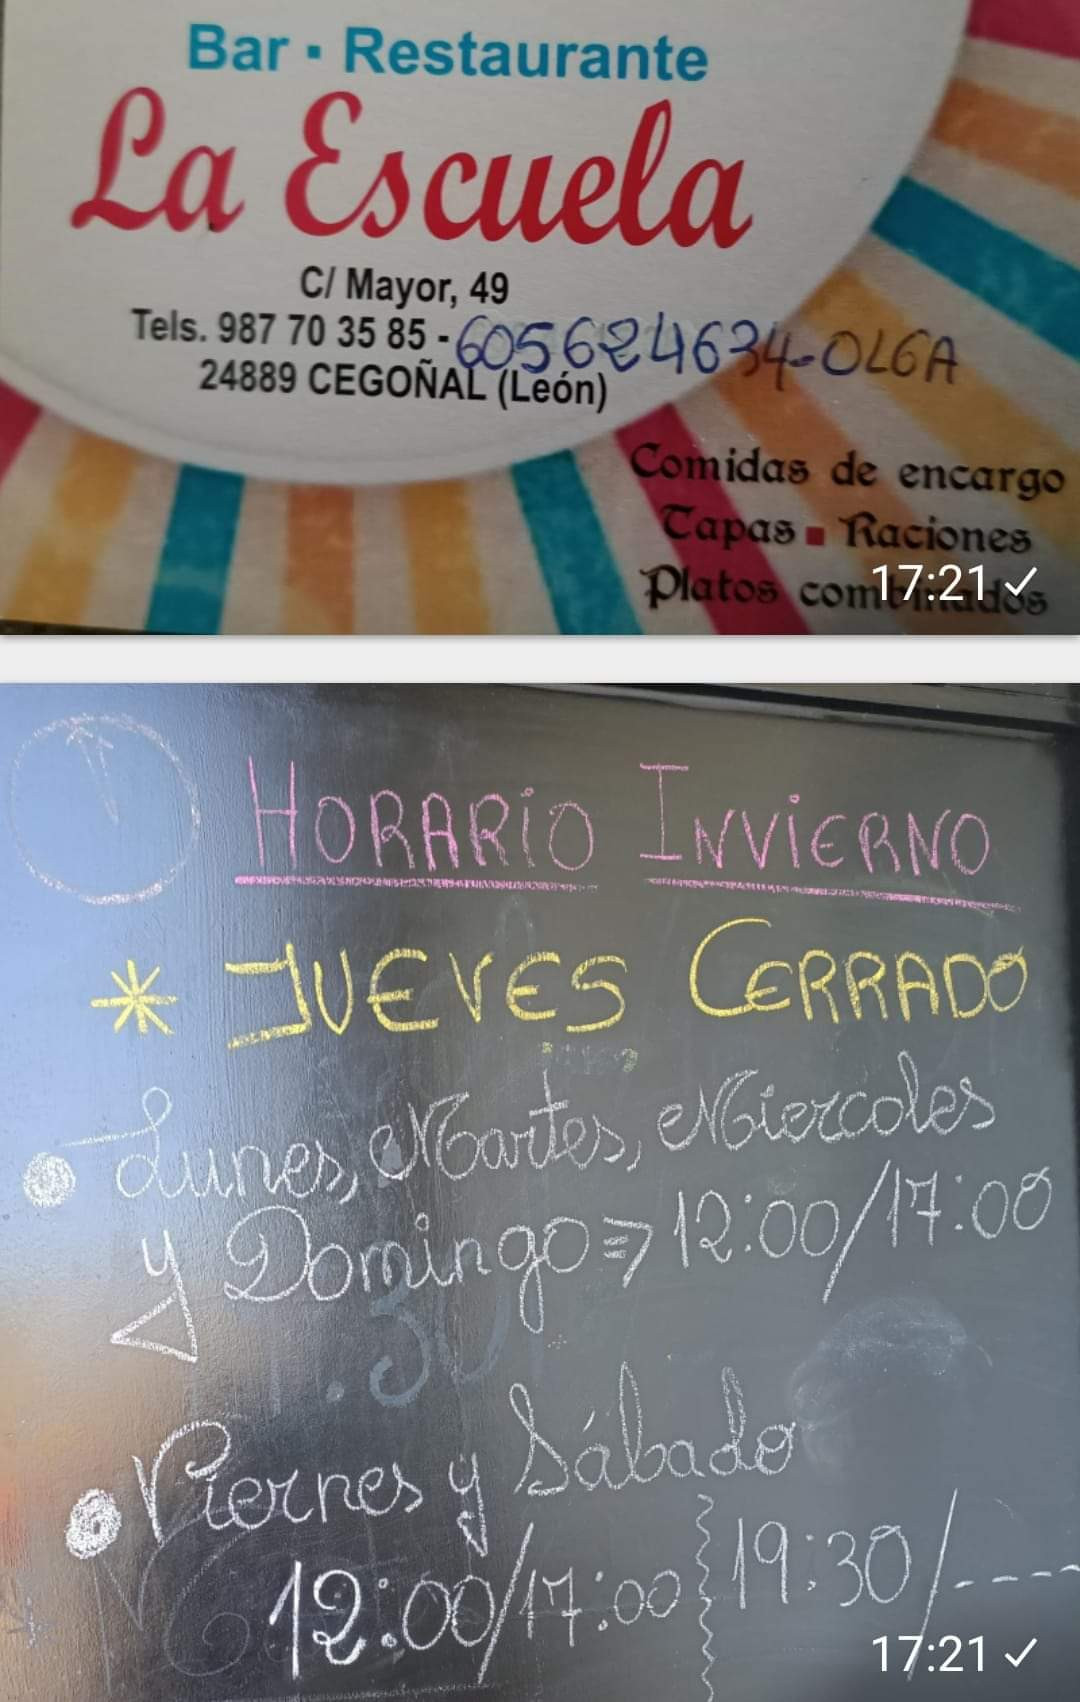 Bar · Restaurante
La Escuela
C/ Mayor, 49
Tels. 987 70 35 85 - 605624634-OLGA
24889 CEGOÑAL (León)
Comidas de encargo
Tapas ▪ Raciones
Platos combinados
17:21 ✓
HORARIO INVIERNO
* JUEVES CERRADO
• Lunes, Martes, Miercoles
y Domingo ⇒ 12:00/17:00
• Viernes y Sábado
12:00/17:00 } 19:30/----
17:21 ✓